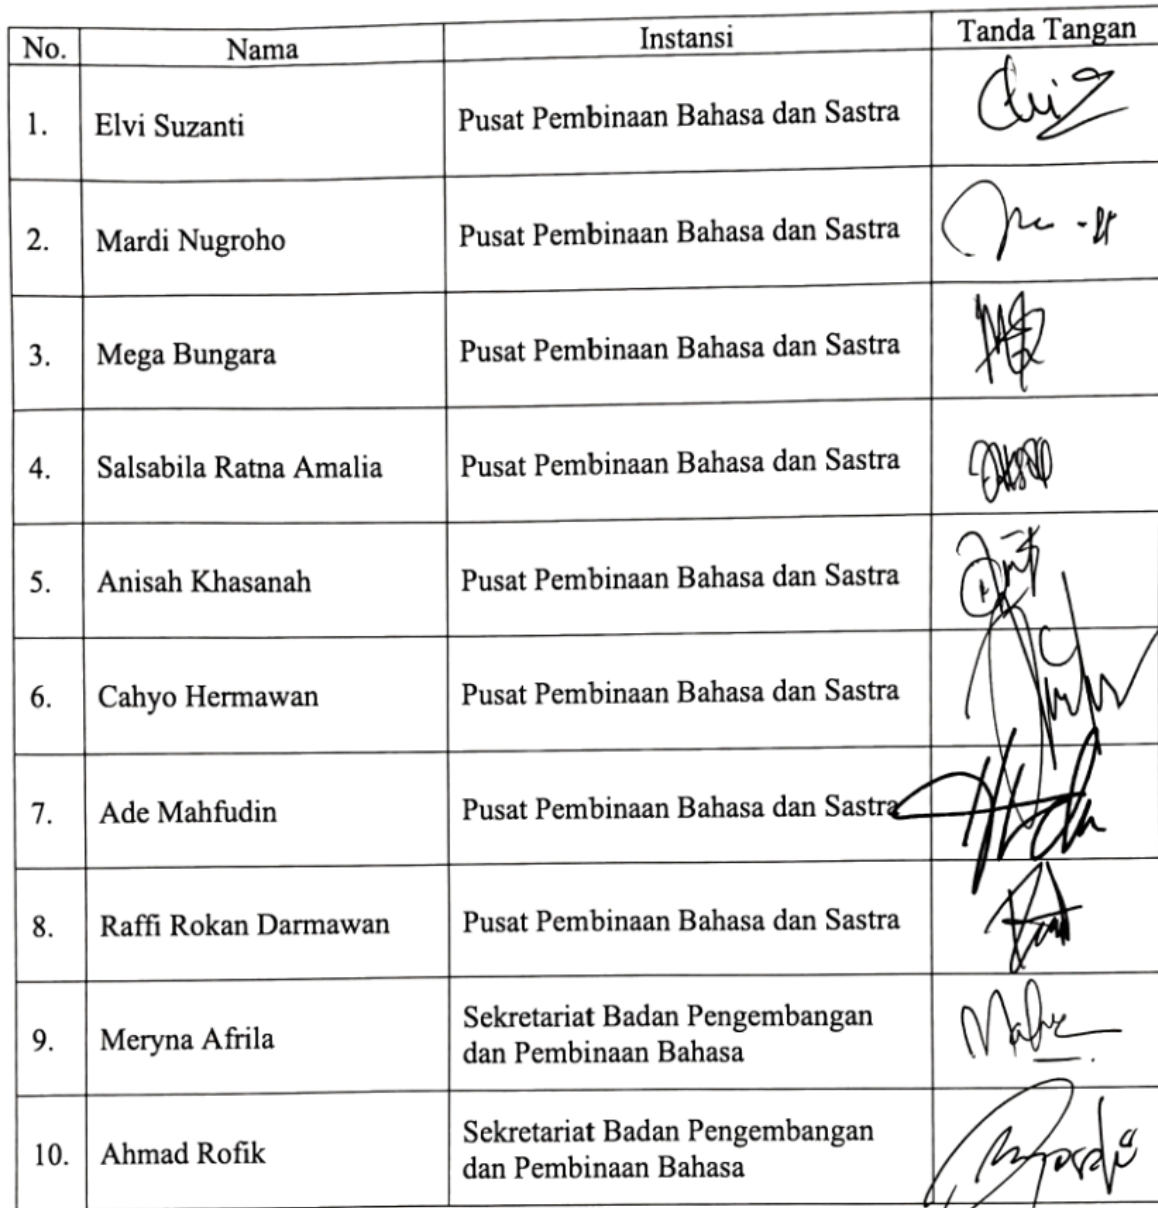 No. Nama Instansi Tanda Tangan
1. Elvi Suzanti Pusat Pembinaan Bahasa dan Sastra
2. Mardi Nugroho Pusat Pembinaan Bahasa dan Sastra
3. Mega Bungara Pusat Pembinaan Bahasa dan Sastra
4. Salsabila Ratna Amalia Pusat Pembinaan Bahasa dan Sastra
5. Anisah Khasanah Pusat Pembinaan Bahasa dan Sastra
6. Cahyo Hermawan Pusat Pembinaan Bahasa dan Sastra
7. Ade Mahfudin Pusat Pembinaan Bahasa dan Sastra
8. Raffi Rokan Darmawan Pusat Pembinaan Bahasa dan Sastra
9. Meryna Afrila Sekretariat Badan Pengembangan
dan Pembinaan Bahasa
10. Ahmad Rofik Sekretariat Badan Pengembangan
dan Pembinaan Bahasa